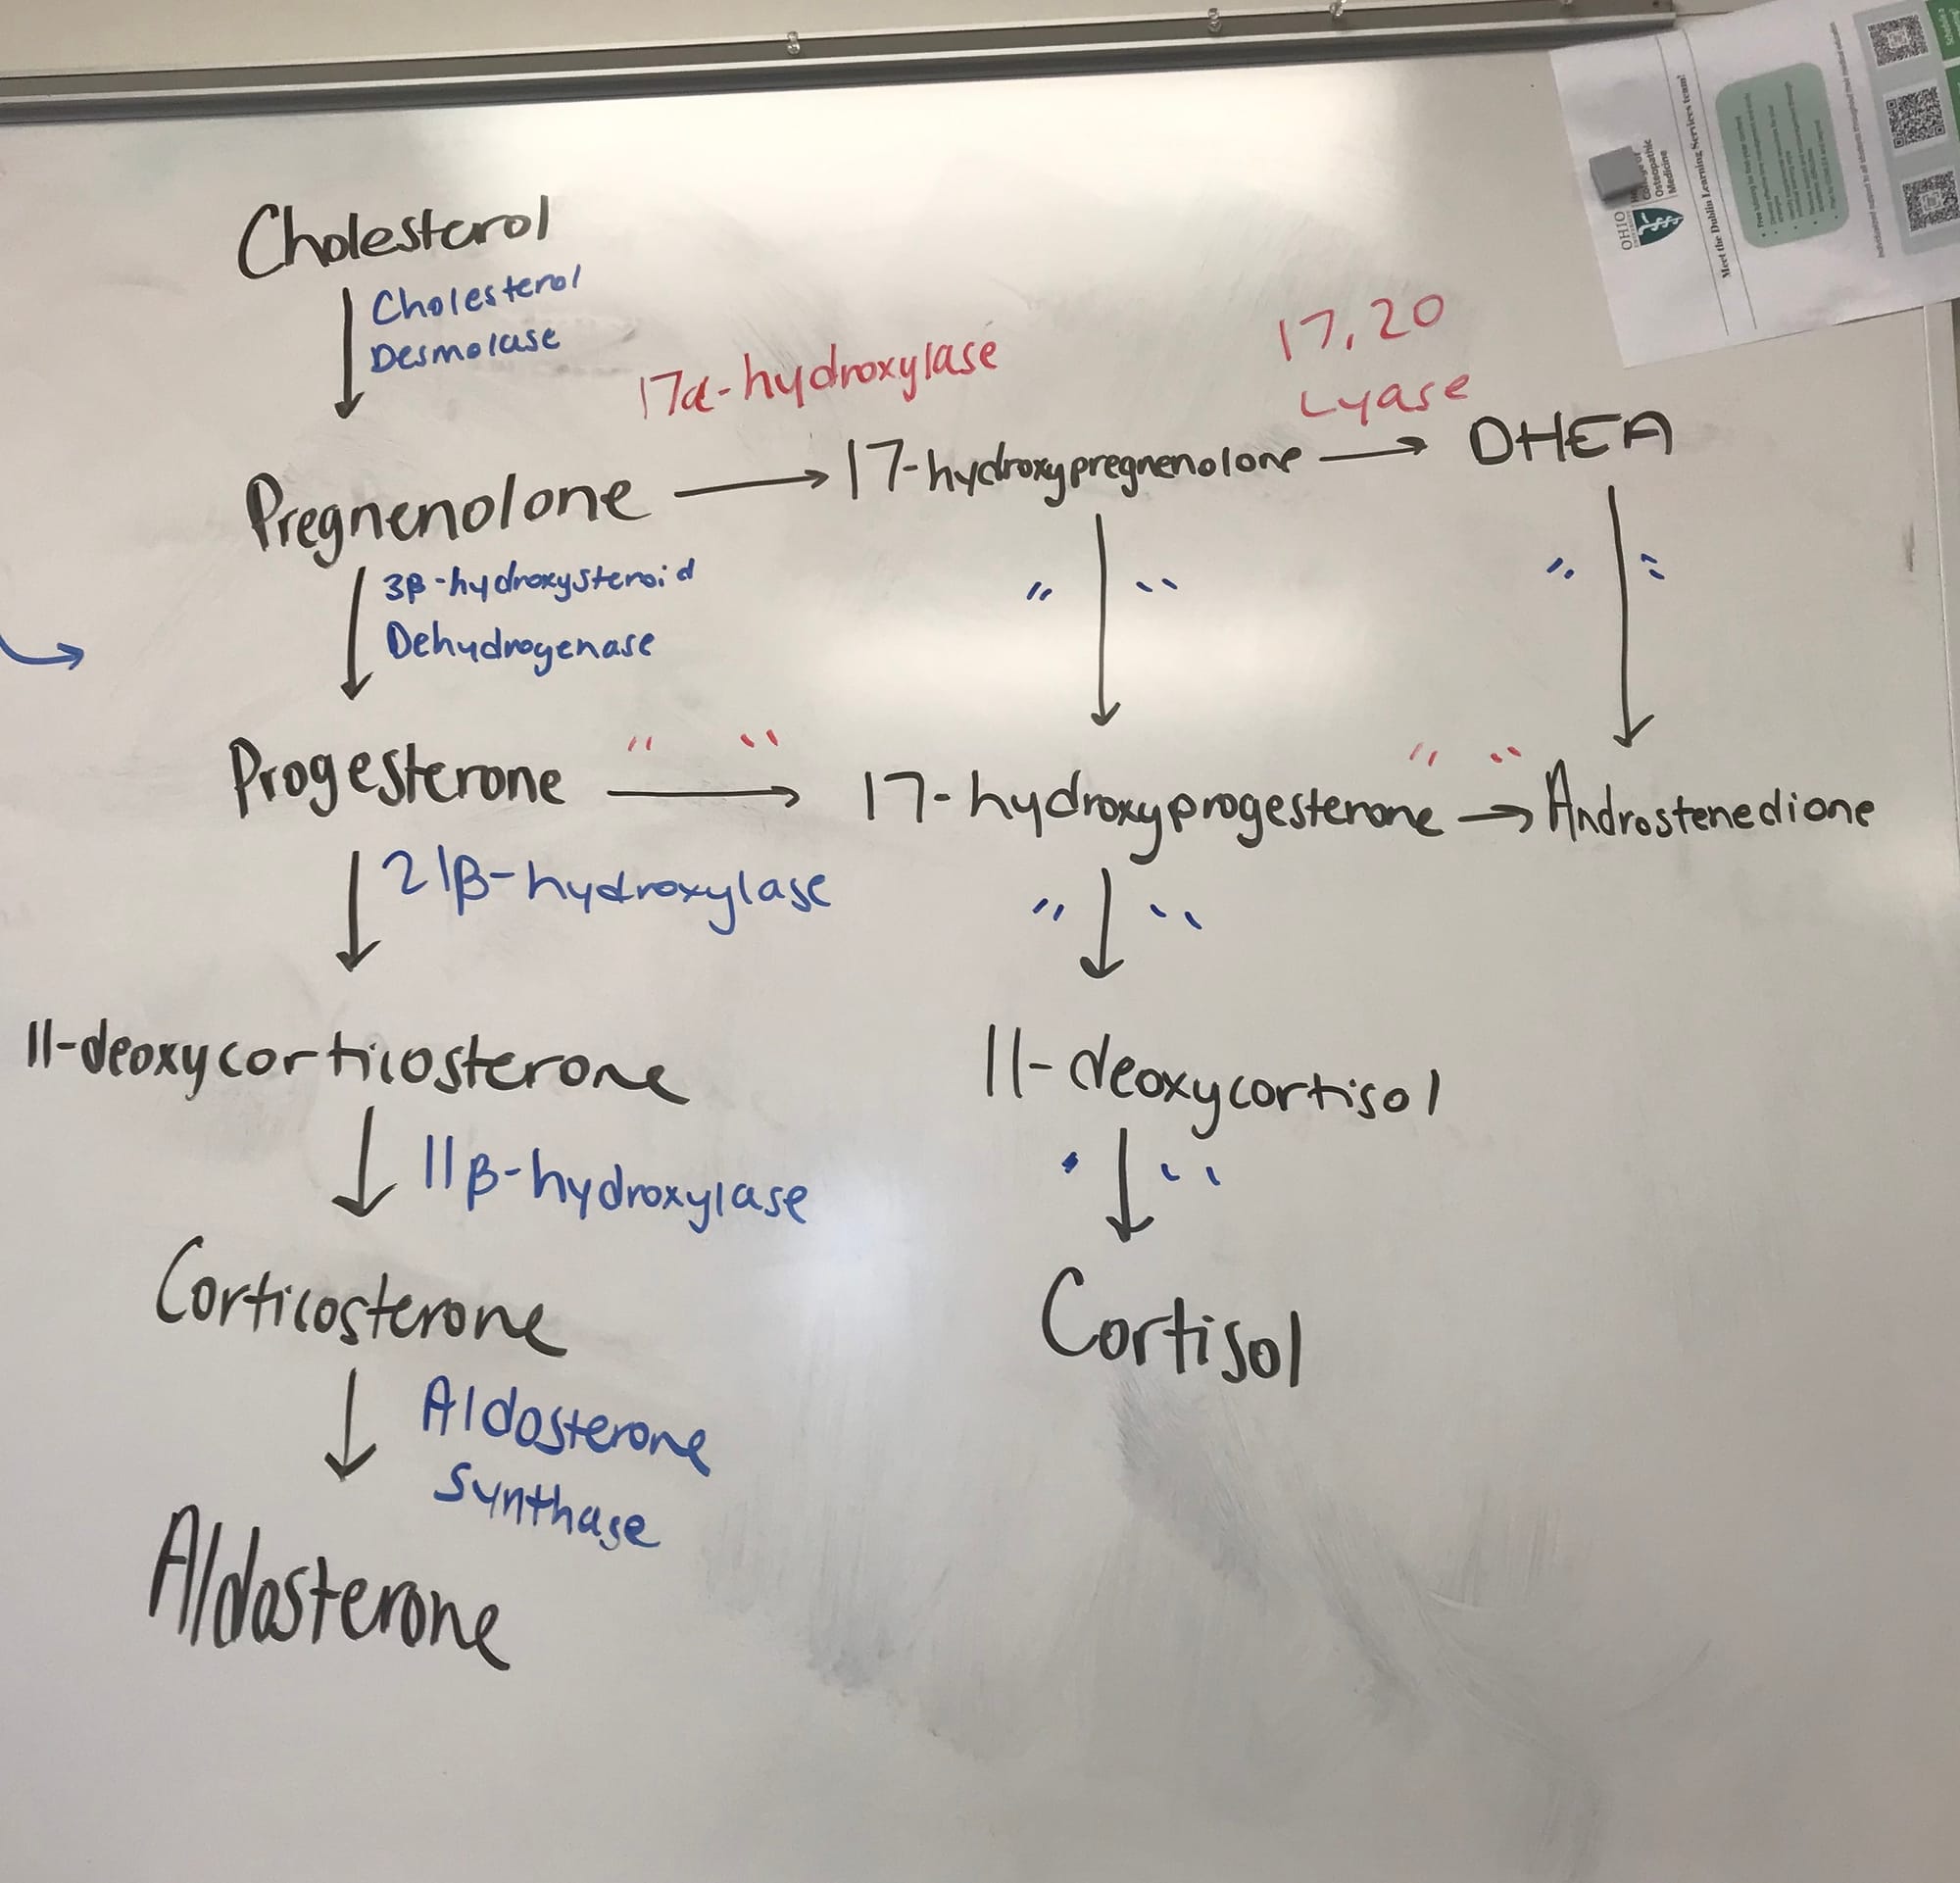 Cholesterol
Cholesterol
Desmolase
17α-hydroxylase
17,20
Lyase
Pregnenolone → 17-hydroxypregnenolone → DHEA
3β-hydroxysteroid
Dehydrogenase
" "
" "
" "
" "
Progesterone → 17-hydroxyprogesterone → Androstenedione
21β-hydroxylase
" "
11-deoxycorticosterone
11-deoxycortisol
11β-hydroxylase
" "
Corticosterone
Cortisol
Aldosterone
Synthase
Aldosterone
OHIO
College of
Osteopathic
Medicine
Meet the Dublin Learning Services team!